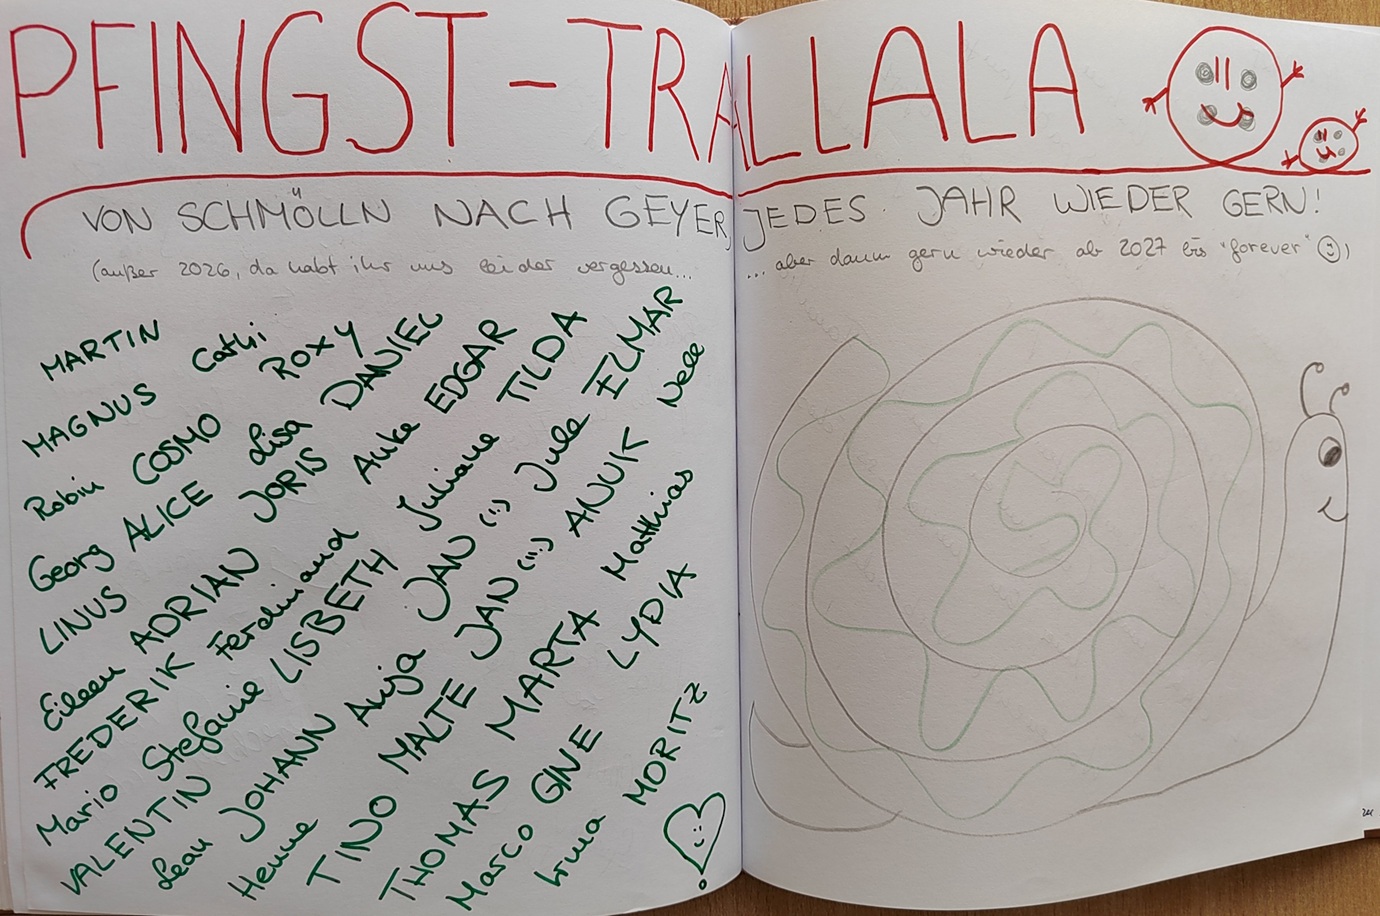 PFINGST-TRALLALA
VON SCHMÖLLN NACH GEYER, JEDES JAHR WIEDER GERN!
(außer 2026, da habt ihr uns leider vergessen... ...aber dann gern wieder ab 2027 bis "forever" ☺)
MARTIN
MAGNUS Cathi
Robin COSMO ROXY
Georg ALICE Lisa DANIEL
LINUS JORIS Anke EDGAR
Eileen ADRIAN Juliane TILDA
FREDERIK Ferdinand JAN (:) Jule ELMAR
Mario Stefanie LISBETH JAN (:) ANUK Nele
VALENTIN JOHANN Anja Matthias
Lean MALTE MARTA LYDIA
Henne TINO
THOMAS GINE MORITZ
Marco Irma